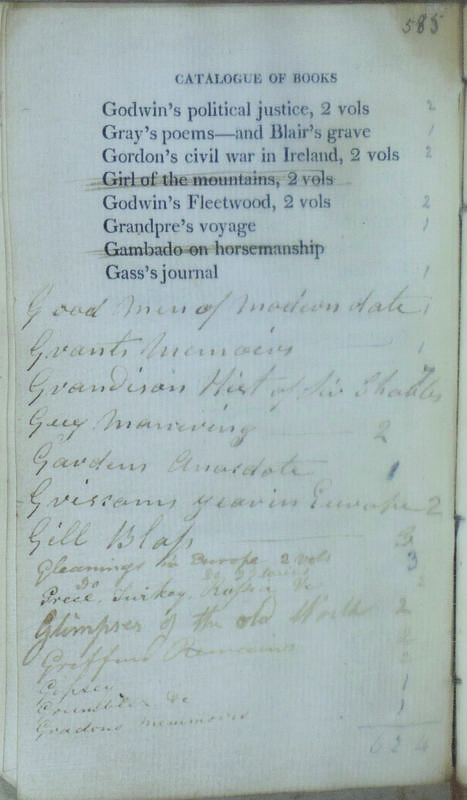 585
CATALOGUE OF BOOKS
Godwin's political justice, 2 vols 2
Gray's poems—and Blair's grave 1
Gordon's civil war in Ireland, 2 vols 2
Girl of the mountains, 2 vols
Godwin's Fleetwood, 2 vols 2
Grandpre's voyage 1
Gambado on horsemanship
Gass's journal 1
Good men of modern date 1
Grants Memoirs 1
Grandison Hist of Sir Charles 7
Guy Manering 2
Gardens Anecdote 1
Griscoms year in Europe 2
Gill Blass 3
Gleanings in Europe 2 vols 3
Do Do 2 vols
Grece, Turkey, Russia &c 2
Glimpses of the old World 2
Griffins Remains 2
Gipsey 1
&c 1
Memmoirs
624